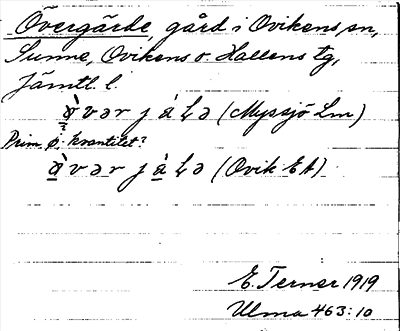 Övergärde, gård i Ovikens sn,
Sunne, Ovikens o. Hallens tg,
Jämtl. l.
(Myssjö Lm)
Prim. kvantitet?
(Ovik EA)
E. Terner 1919
Ulma 463:10